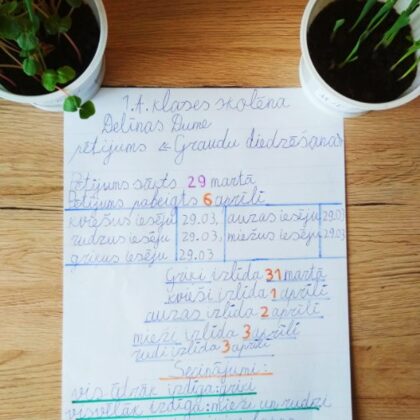 1.A. klases skolēna
Delīnas Dume
pētījums "Graudu diedzēšana"
Pētījums sākts 29 martā
Pētījums pabeigts 6 aprīlī
kviešus iesēju 29.03, auzas iesēju 29.03
rudzus iesēju 29.03, miežus iesēju 29.03
griķus iesēju 29.03
Griķi izlīda 31 martā
kvieši izlīda 1 aprīlī
auzas izlīda 2 aprīlī
mieži izlīda 3 aprīlī
rudzi izlīda 3 aprīlī
Secinājumi:
vis ātrāk izdīga: griķi
visvēlāk izdīga: mieži un rudzi